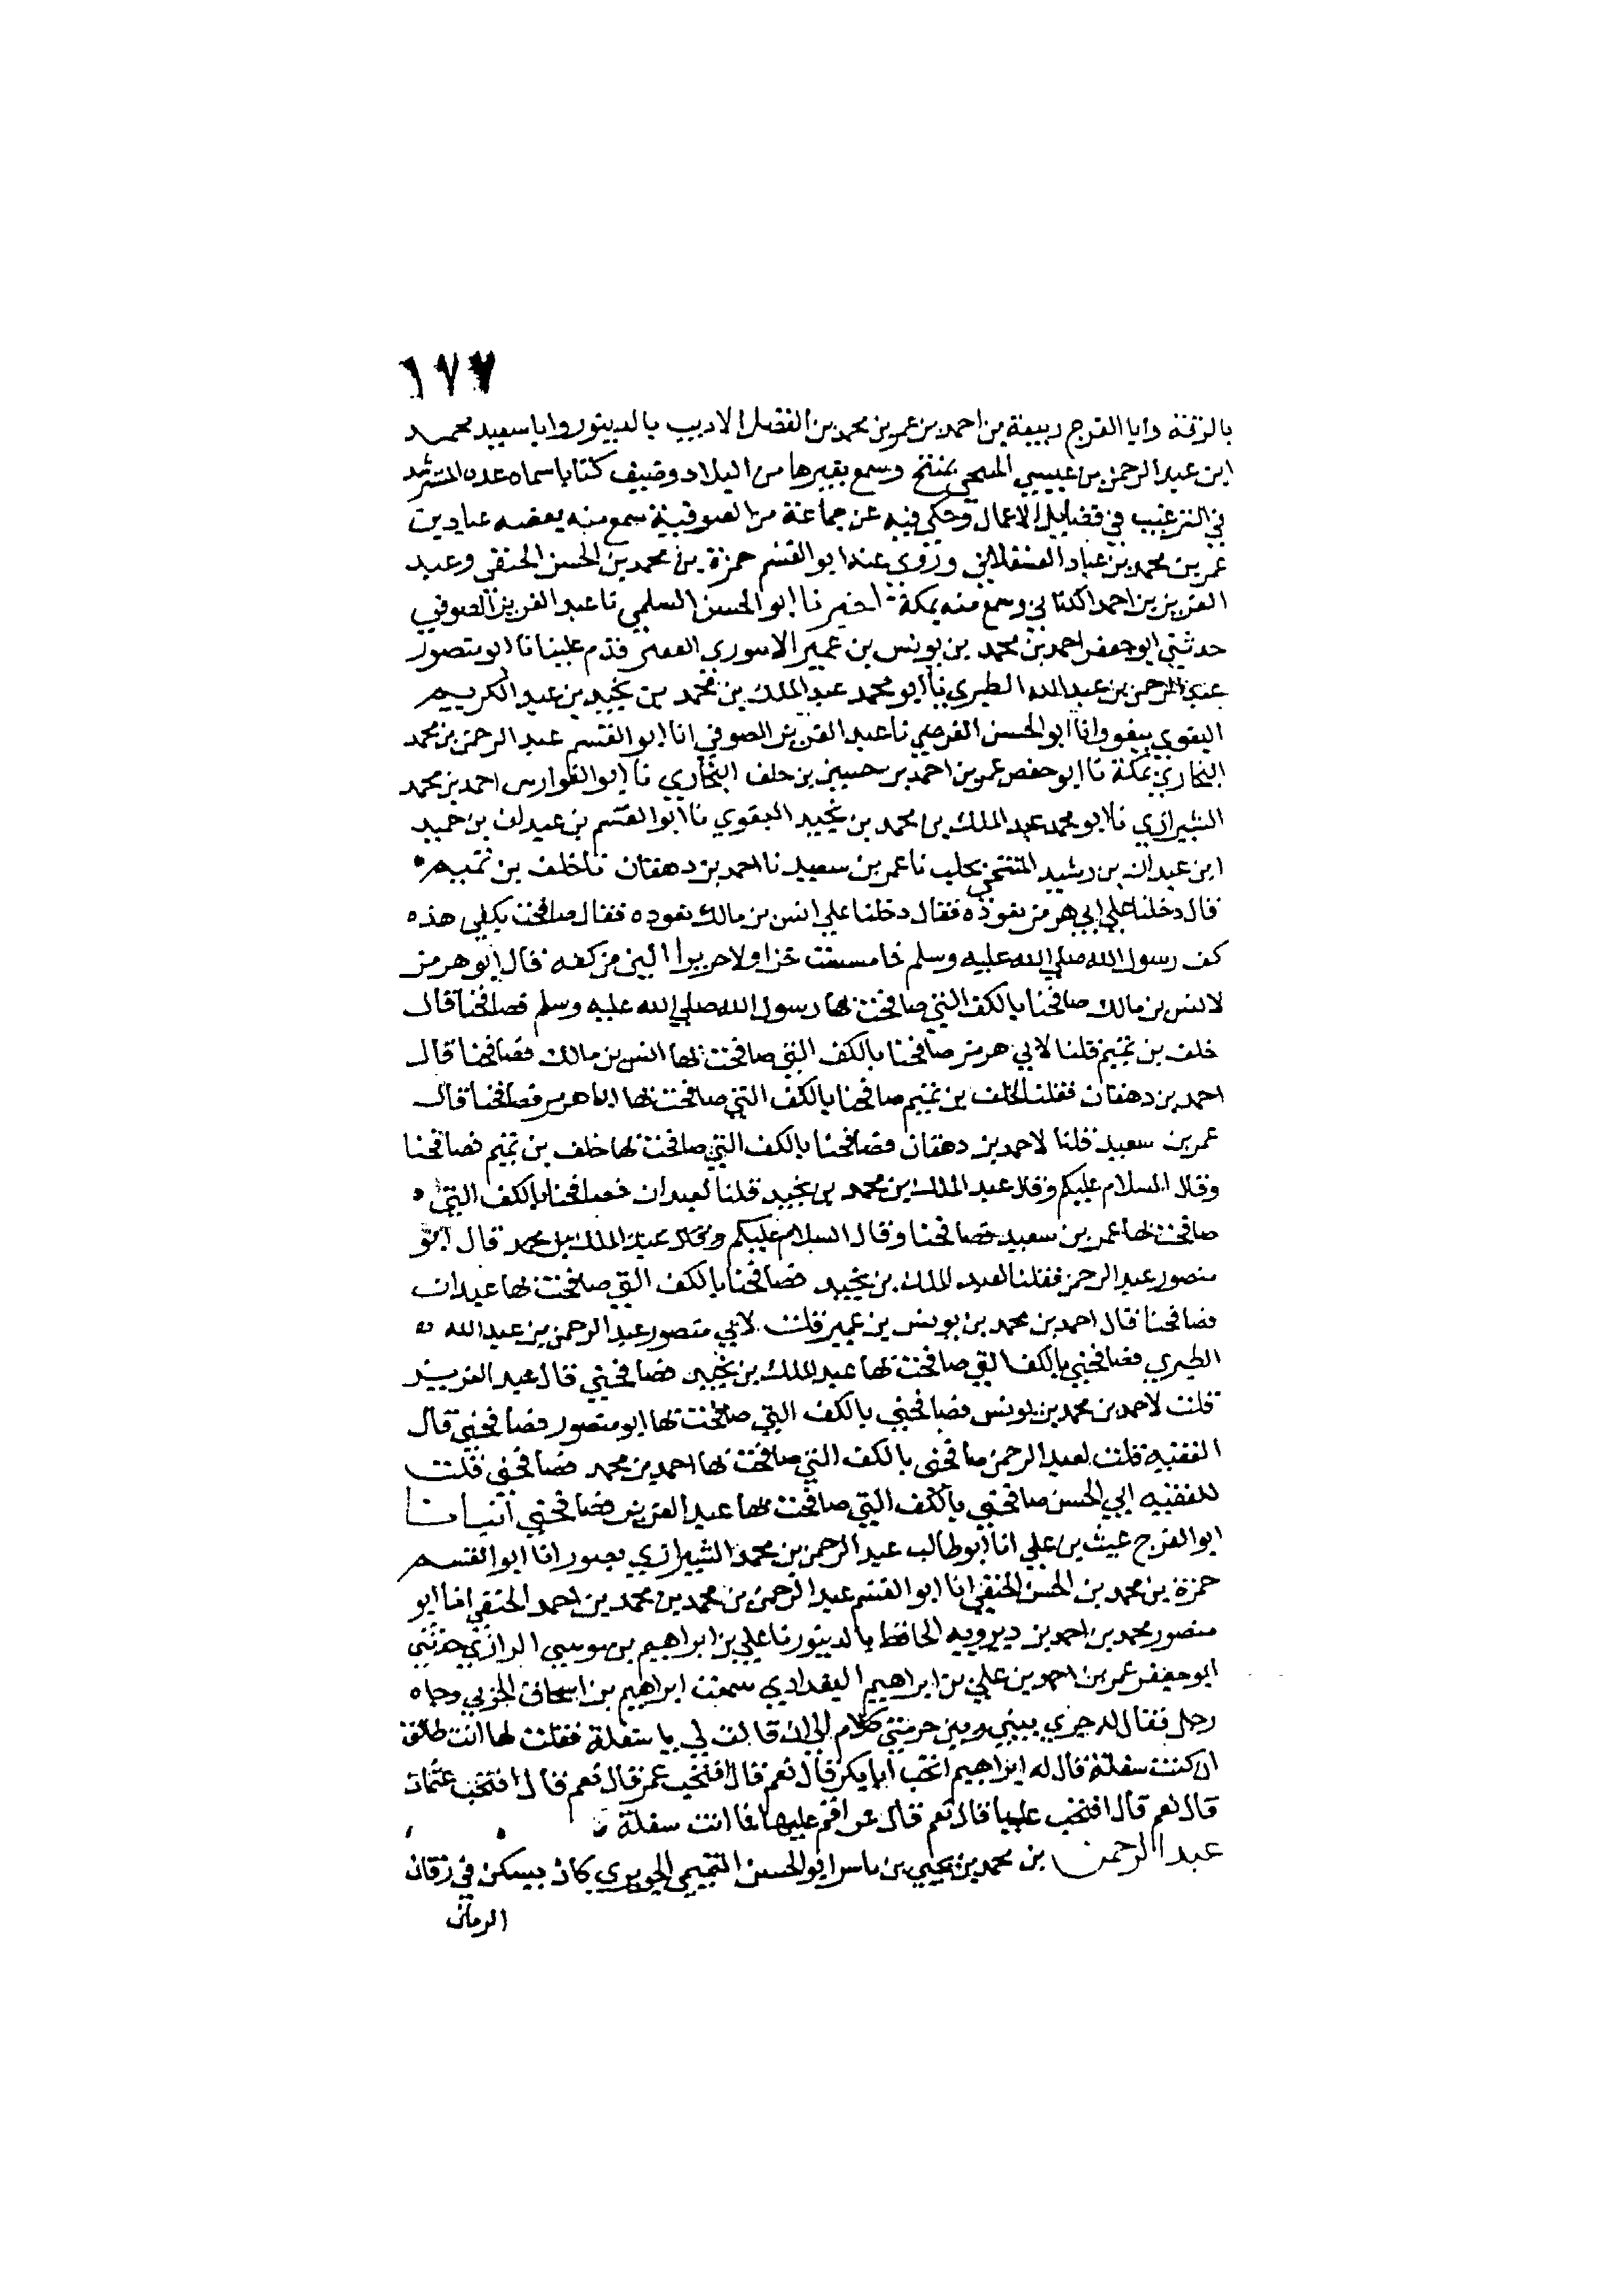 ١٧٧
بالرقة وابا الفرج ربيعة بن احمد بن عمر بن محمد بن الفضل الاديب بالدينور وابا سعيد محمد
ابن عبد الرحمن بن عيسى المنبجي بمنبج وسمع بغيرها من البلاد وصنف كتابا سماه عدة المسترشد
في الترغيب في فضايل الاعمال وحكى فيه عن جماعة من الصوفية سمع منه بعضه عباد بن
عمر بن محمد بن عباد العسقلاني وروى عنه ابو القسم حمزة بن محمد بن الحسن الحنفي وعبد
العزيز بن احمد الكتاني وسمع منه بمكة اخبرنا ابو الحسن السلمي نا عبد العزيز الصوفي
حدثني ابو جعفر احمد بن محمد بن يونس بن عمير الاسوري قدم علينا نا ابو منصور
عبد الرحمن بن عبد الله الطبري نا ابو محمد عبد الملك بن محمد بن نجيد بن عبد الكريم
البغوي ببغو وانا ابو الحسن الفرضي نا عبد العزيز الصوفي انا ابو القسم عبد الرحمن بن محمد
البخاري بمكة نا ابو حفص عمر بن احمد بن حسين بن خلف البخاري نا ابو الفوارس احمد بن محمد
الشيرازي نا ابو محمد عبد الملك بن محمد بن نجيد البغوي نا ابو القسم بن عبدان بن حميد
ابن عبدان بن رشيد المنبجي بحلب نا عمر بن سعيد نا احمد بن دهقان نا خلف بن تميم
قال دخلنا على ابي هرمز نعوده فقال دخلنا على انس بن مالك نعوده فقال صافحت بكفي هذه
كف رسول الله صلى الله عليه وسلم فما مسست خزا ولا حريرا الين من كفه قال ابو هرمز
لانس بن مالك صافحنا بالكف التي صافحت بها رسول الله صلى الله عليه وسلم فصافحنا قال
خلف بن تميم قلنا لابي هرمز صافحنا بالكف التي صافحت بها انس بن مالك فصافحنا قال
احمد بن دهقان فقلنا لخلف بن تميم صافحنا بالكف التي صافحت بها ابا هرمز فصافحنا قال
عمر بن سعيد قلنا لاحمد بن دهقان فصافحنا بالكف التي صافحت بها خلف بن تميم فصافحنا
وقال السلام عليكم وقال عبد الملك بن محمد بن نجيد قلنا لعبدان فصافحنا بالكف التي
صافحت بها عمر بن سعيد فصافحنا وقال السلام عليكم وقال عبد الملك بن محمد قال ابو
منصور عبد الرحمن فقلنا لعبد الملك بن نجيد فصافحنا بالكف التي صافحت بها عبدان
فصافحنا قال احمد بن محمد بن يونس بن عمير قلت لابي منصور عبد الرحمن بن عبد الله
الطبري فصافحني بالكف التي صافحت بها عبد الملك بن نجيد فصافحني قال عبد العزيز
قلت لاحمد بن محمد بن يونس فصافحني بالكف التي صافحت بها ابو منصور فصافحني قال
الفقيه قلت لعبد الرحمن صافحني بالكف التي صافحت بها احمد بن محمد فصافحني قلت
للفقيه ابي الحسن صافحني بالكف التي صافحت بها عبد العزيز فصافحني انبانا
ابو الفرج غيث بن علي انا ابو طالب عبد الرحمن بن محمد الشيرازي بصور انا ابو القسم
حمزة بن محمد بن الحسن الحنفي انا ابو القسم عبد الرحمن بن محمد بن محمد بن احمد الحنفي انا ابو
منصور محمد بن احمد بن ديرويه الحافظ بالدينور نا علي بن ابراهيم بن موسى الرازي حدثني
ابو جعفر عمر بن احمد بن علي بن ابراهيم البغدادي سمعت ابراهيم بن اسحاق الحربي وجاه
رجل فقال له جرى بيني وبين حرمتي كلام الى ان قالت لي يا سفلة فقلت لها انت طالق
ان كنت سفلة فقال له ابراهيم اتحب ابا بكر قال نعم قال افتحب عمر قال نعم قال افتحب عثمان
قال نعم قال افتحب عليا قال نعم قال فما انت سفلة
عبد الرحمن بن محمد بن يحيى بن ياسر ابو الحسن التميمي الجوبري كان يسكن في زقاق
الرمان